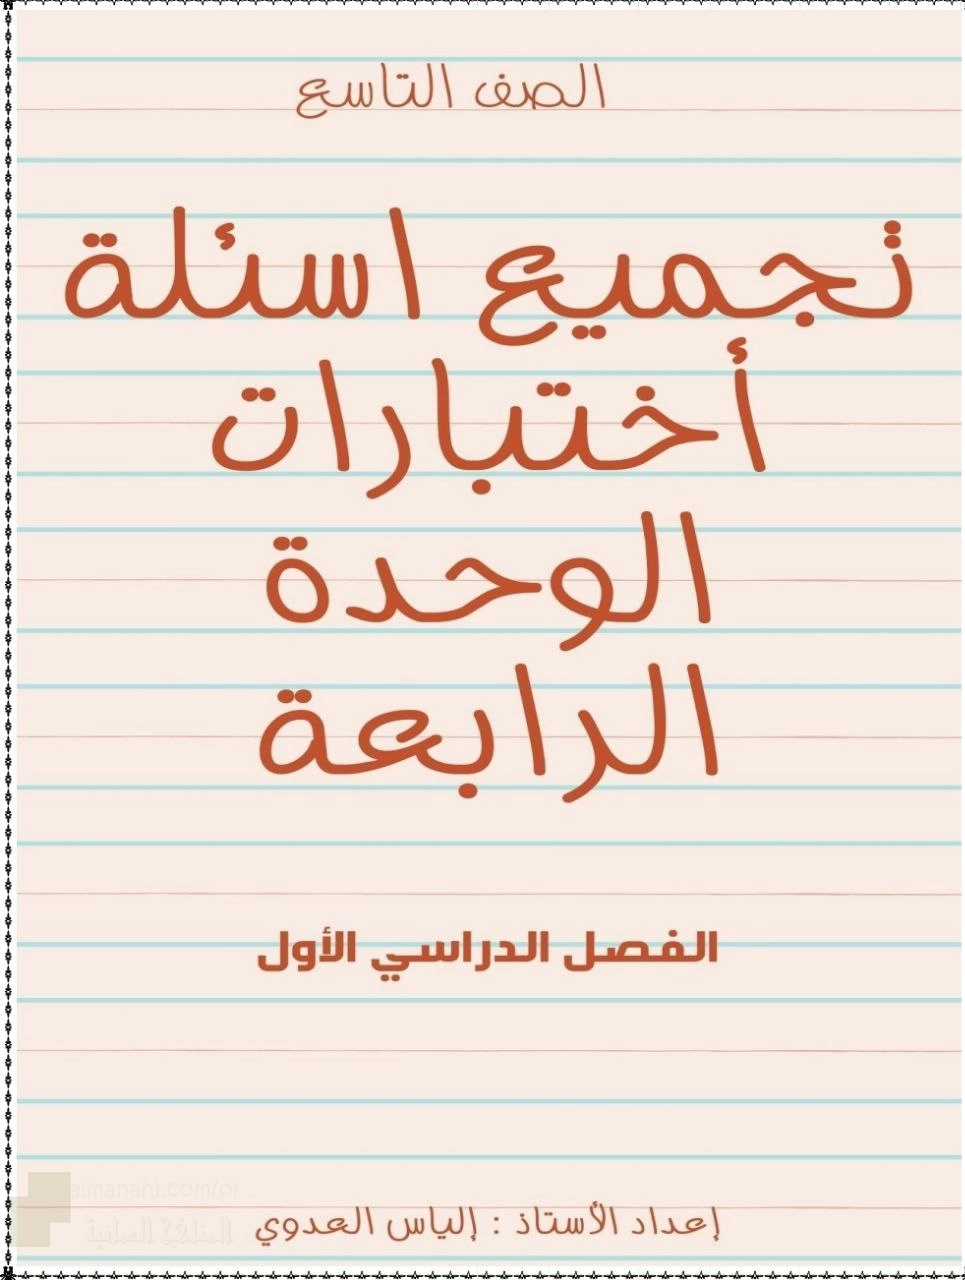 الصف التاسع
تجميع اسئلة
أختبارات
الوحدة
الرابعة
الفصل الدراسي الأول
almanahj.com/om
المناهج العمانية
إعداد الأستاذ : إلياس العدوي